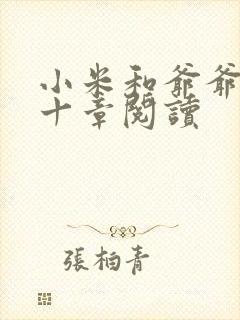 小米和爺爺
十章閱讀
張栢青